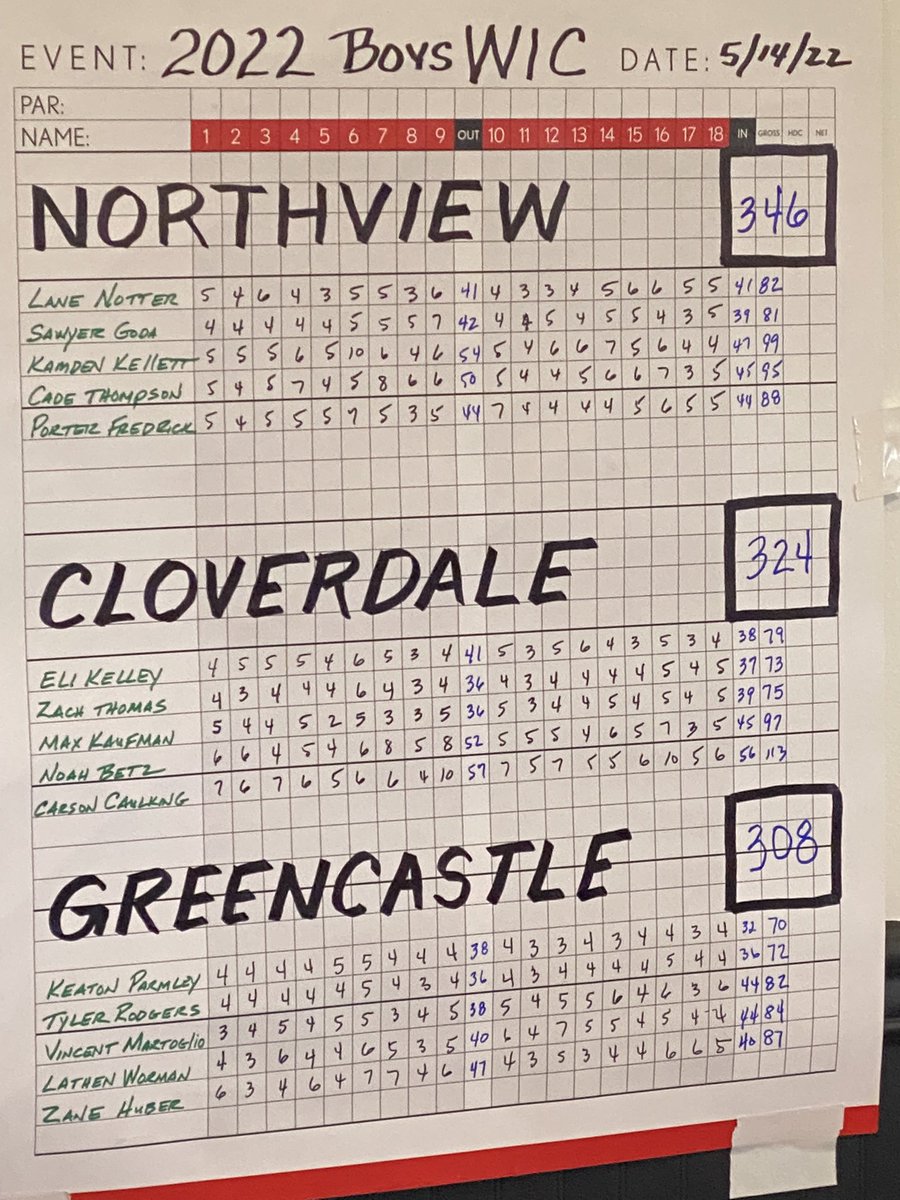 EVENT: 2022 BOYS WIC DATE: 5/14/22
PAR:
NAME: 1 2 3 4 5 6 7 8 9 OUT 10 11 12 13 14 15 16 17 18 IN GROSS HDC NET
NORTHVIEW 346
LANE NOTTER 5 4 6 4 3 5 5 3 6 41 4 3 3 4 5 6 6 5 5 41 82
SAWYER GODA 4 4 4 4 4 5 5 5 7 42 4 4 5 4 5 5 4 3 5 39 81
KAMDEN KELLETT 5 5 5 6 5 10 6 4 6 54 5 4 6 6 7 5 6 4 4 47 99
CADE THOMPSON 5 4 5 7 4 5 8 6 6 50 5 4 4 5 6 6 7 3 5 45 95
PORTER FREDRICK 5 4 5 5 5 7 5 3 5 44 7 4 4 4 4 5 6 5 5 44 88
CLOVERDALE 324
ELI KELLEY 4 5 5 5 4 6 5 3 4 41 5 3 5 6 4 3 5 3 4 38 79
ZACH THOMAS 4 3 4 4 4 6 4 3 4 36 4 3 4 4 4 4 5 4 5 37 73
MAX KAUFMAN 5 4 4 5 2 5 3 3 5 36 5 3 4 4 5 4 5 4 5 39 75
NOAH BETZ 6 6 4 5 4 6 8 5 8 52 5 5 5 4 6 5 7 3 5 45 97
CARSON CAULKING 7 6 7 6 5 6 6 4 10 57 7 5 7 5 5 6 10 5 6 56 113
GREENCASTLE 308
KEATON PARMLEY 4 4 4 4 5 5 4 4 4 38 4 3 3 4 3 4 4 3 4 32 70
TYLER RODGERS 4 4 4 4 4 5 4 3 4 36 4 3 4 4 4 4 5 4 4 36 72
VINCENT MARTOGLIO 3 4 5 4 5 5 3 4 5 38 5 4 5 5 6 4 6 3 6 44 82
LATHEN WORMAN 4 3 6 4 4 6 5 3 5 40 6 4 7 5 5 4 5 4 4 44 84
ZANE HUBER 6 3 4 6 4 7 7 4 6 47 4 3 5 3 4 4 6 6 5 40 87